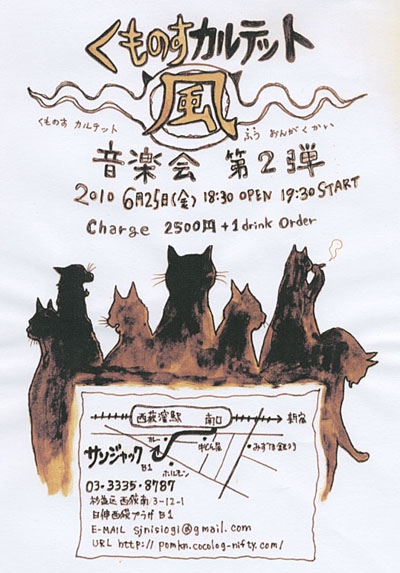 くものすカルテット
風
くものす カルテット
ふう おんがくかい
音楽会 第2弾
2010 6月25日(金) 18:30 OPEN 19:30 START
Charge 2500円 +1 drink Order
西荻窪駅 南口 新宿
カレー 牛どん屋 みずほ銀行
サンジャック
B1
ホルモン
03・3335・8787
杉並区西荻南 3-12-1
日伸西荻プラザ B1
E-MAIL sjnisiogi@gmail.com
URL http://pomkn.cocolog-nifty.com/